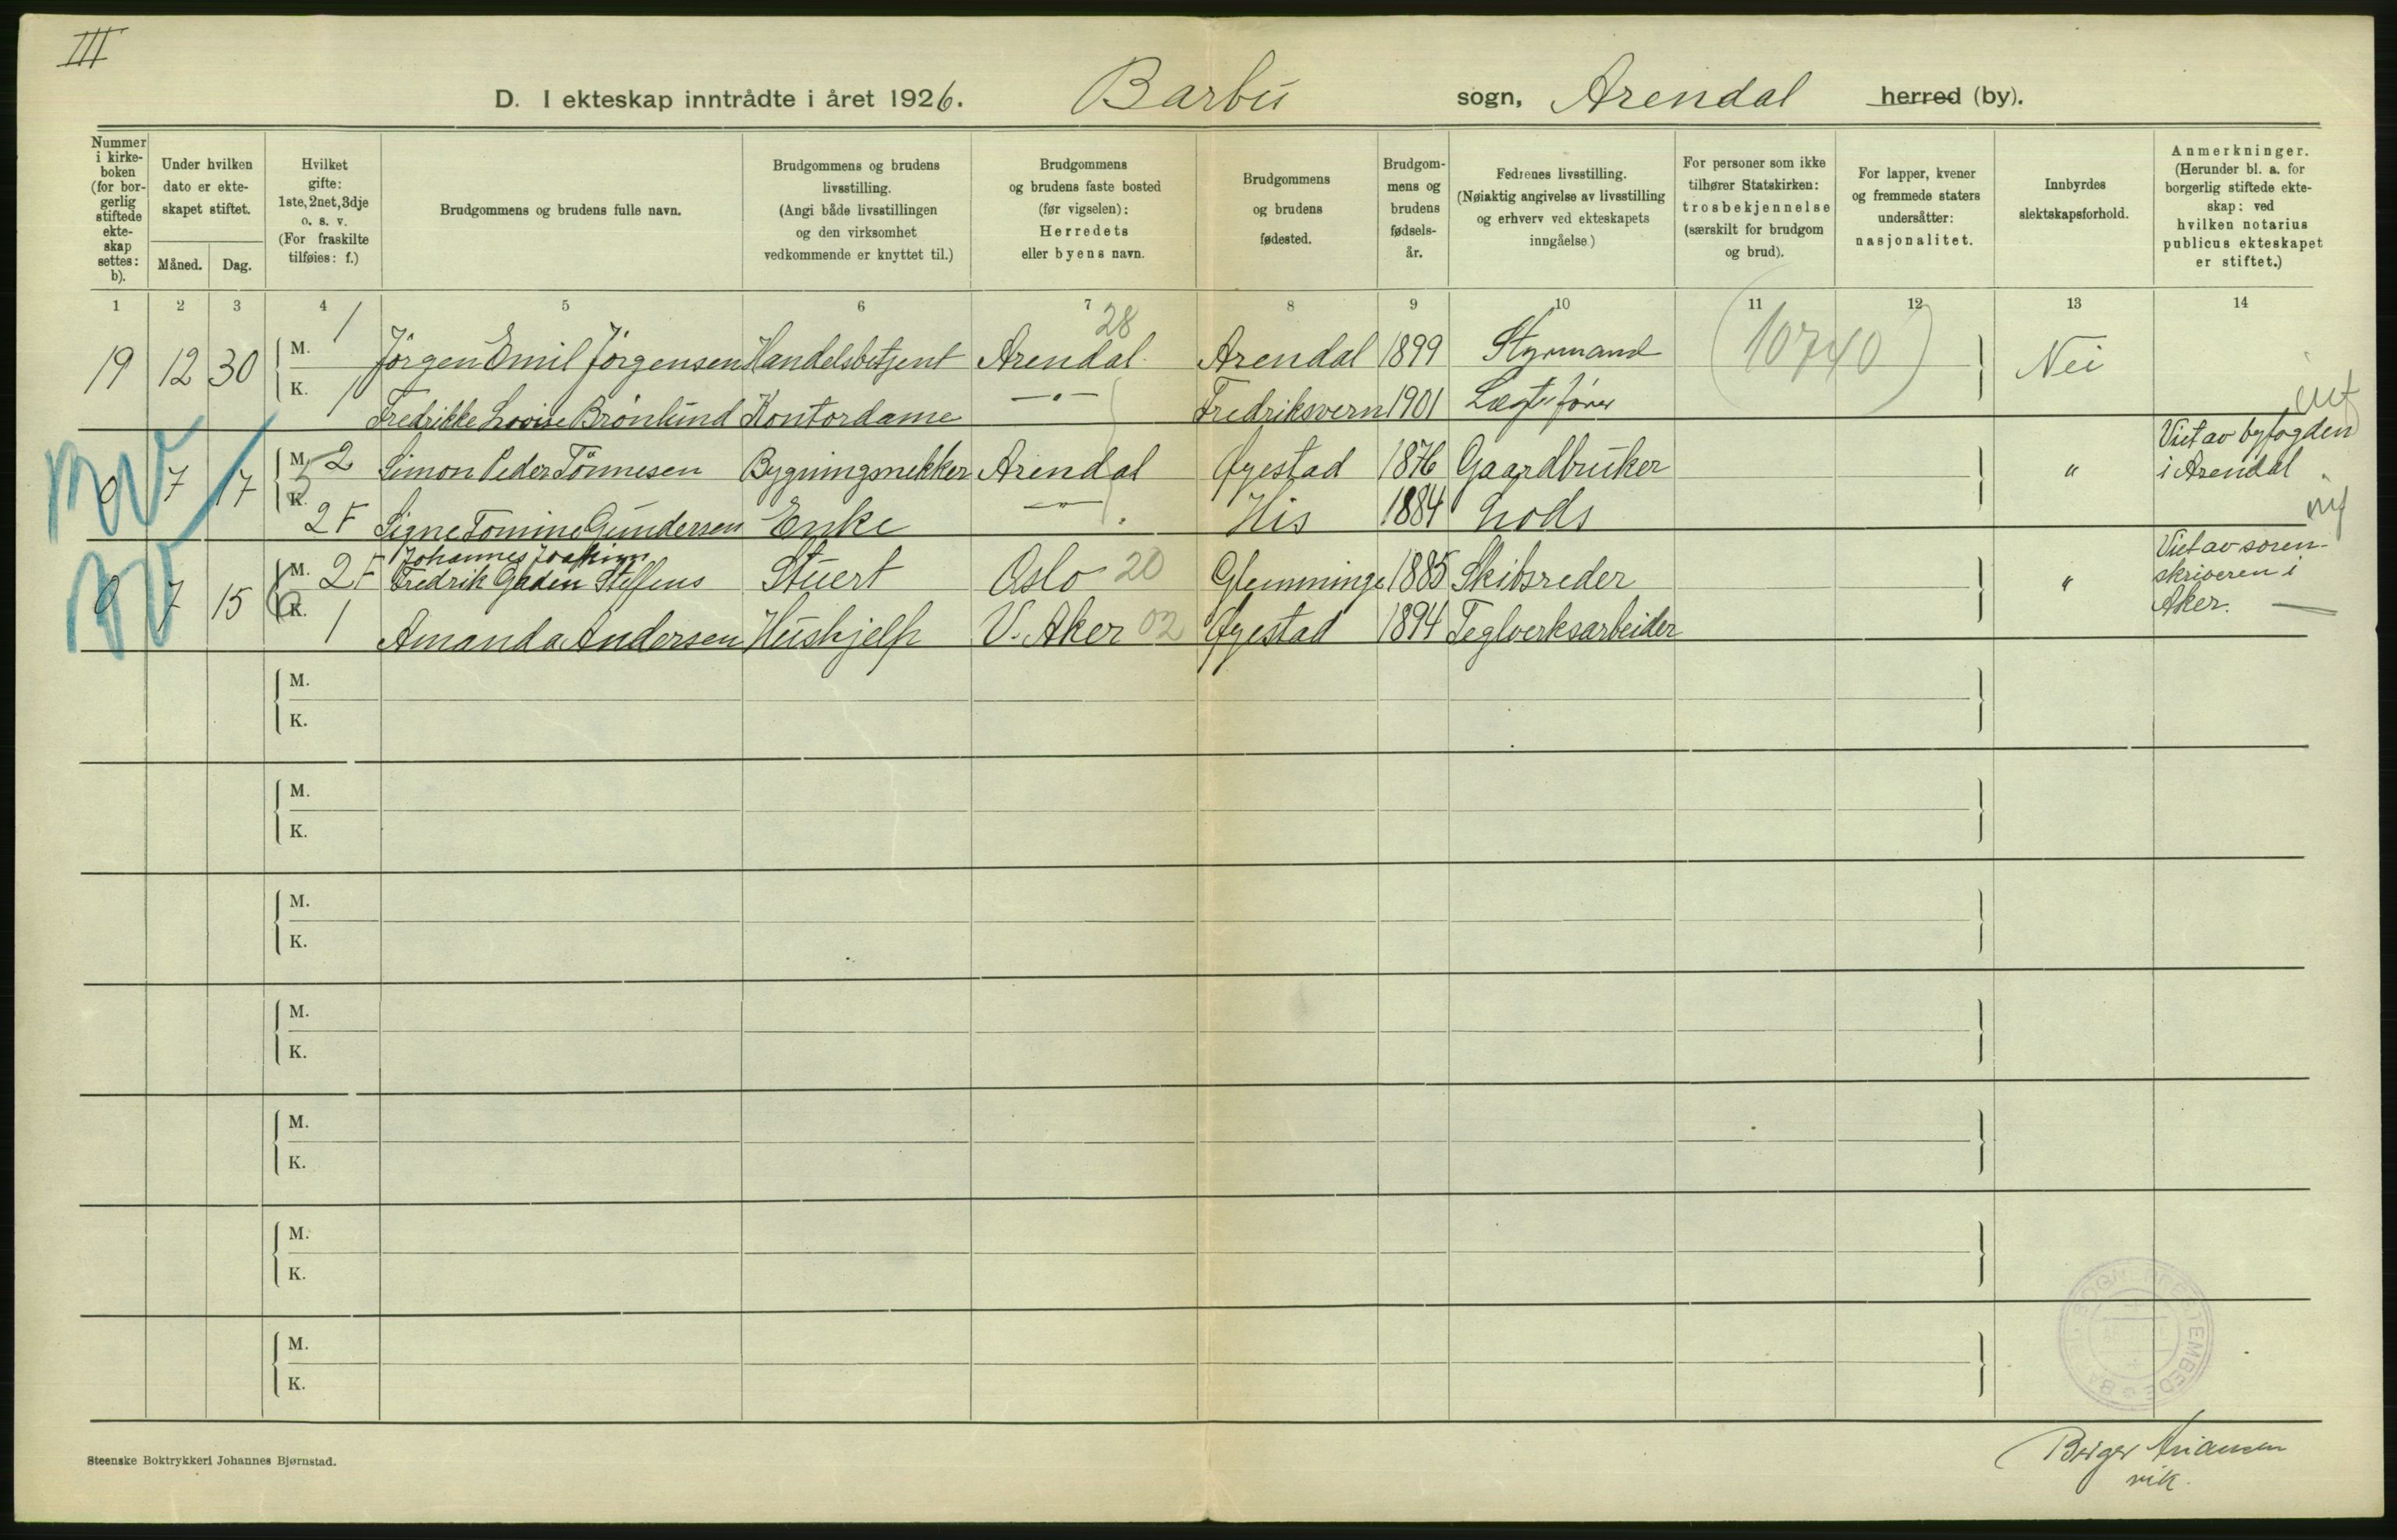 III
D. I ekteskap inntrådte i året 1926. Barbu sogn, Arendal herred (by).
Nummer i kirke- boken (for bor- gerlig stiftede ekte- skap settes: b).
Under hvilken dato er ekte- skapet stiftet.
Måned. Dag.
Hvilket gifte: 1ste, 2net, 3dje o. s. v. (For fraskilte tilføies: f.)
Brudgommens og brudens fulle navn.
Brudgommens og brudens livsstilling. (Angi både livsstillingen og den virksomhet vedkommende er knyttet til.)
Brudgommens og brudens faste bosted (før vigselen): Herredets eller byens navn.
Brudgommens og brudens fødested.
Brudgom- mens og brudens fødsels- år.
Fedrenes livsstilling. (Nøiaktig angivelse av livsstilling og erhverv ved ekteskapets inngåelse)
For personer som ikke tilhører Statskirken: trosbekjennelse (særskilt for brudgom og brud).
For lapper, kvener og fremmede staters undersåtter: nasjonalitet.
Innbyrdes slektskapsforhold.
Anmerkninger. (Herunder bl. a. for borgerlig stiftede ekte- skap: ved hvilken notarius publicus ekteskapet er stiftet.)
1 2 3 4 5 6 7 8 9 10 11 12 13 14
28
19 12 30 M. 1 Jörgen Emil Jörgensen Handelsbetjent Arendal Arendal 1899 Styrmand (10740) Nei
K. 1 Fredrikke Lovise Brönlund Kontordame —"— Fredriksvern 1901 Lægtefører
0 7 17 M. 2 Simon Peder Tönnesen Bygningsnekker Arendal Øyestad 1876 Gaardbruker " Viet av byfogden i Arendal
K. 2 F Signe Tomine Gundersen Enke —"— His 1884 Lods
0 7 15 M. 2 F Johannes Joakim Fredrik Gaden Steffens Stuert Oslo 20 Glemminge 1885 Skibsreder " Viet av soren- skriveren i Aker. —
K. 1 Amanda Andersen Hushjelp V. Aker 02 Øyestad 1894 Teglverksarbeider
M.
K.
M.
K.
M.
K.
M.
K.
M.
K.
M.
K.
M.
K.
Steenske Boktrykkeri Johannes Bjørnstad.
Birger
vik.